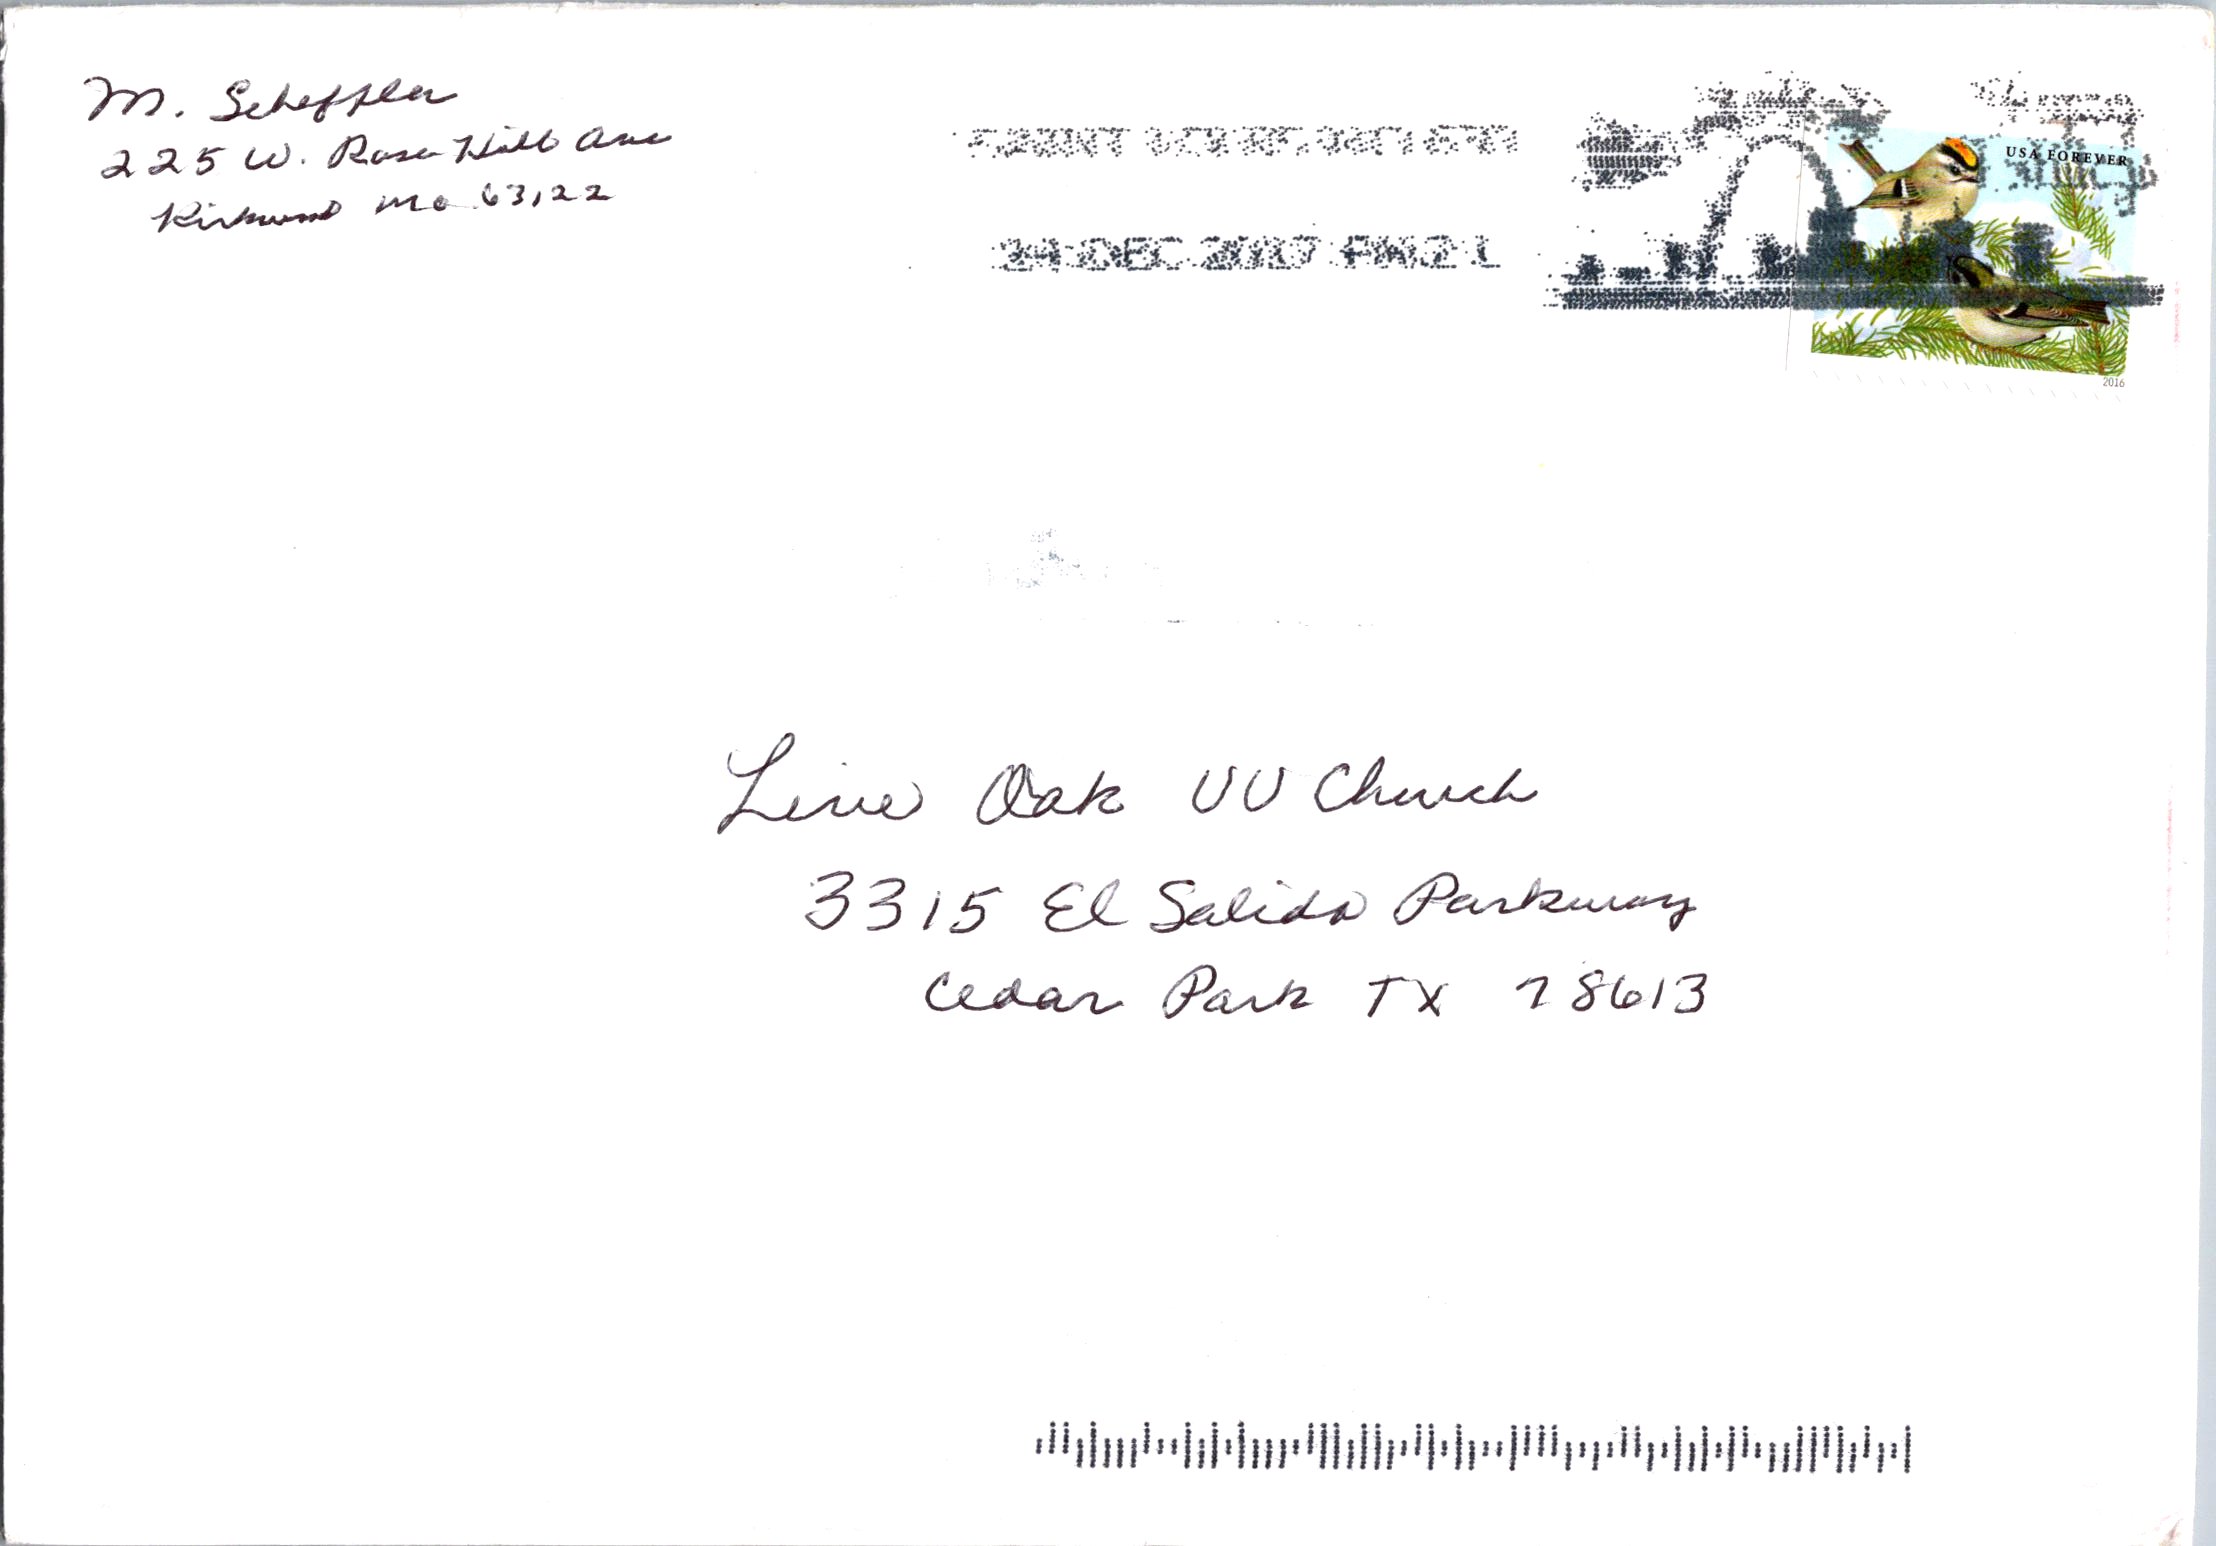 M. Scheffler
225 W. Rose Hill Ave
Kirkwood Mo 63122
SAINT LOUIS MO 631
24 DEC 2017 PM 2 L
USA FOREVER
2016
Live Oak UU Church
3315 El Salido Parkway
Cedar Park TX 78613